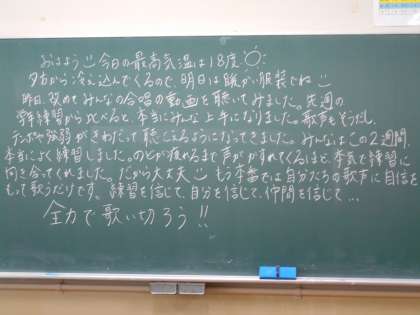 おはよう 今日の最高気温は18度
夕方から冷え込んでくるので、明日は暖かい服装でね
昨日、改めてみんなの合唱の動画を聴いてみました。先週の
学年練習から比べると、本当にみんな上手になりました。歌声もそうだし、
テンポや強弱がきわだって聴こえるようになってきました。みんなはこの2週間、
本当によく練習しました。のどが疲れるまで声がかすれてくるほど、本気で練習に
向き合ってくれました。だから大丈夫 もう本番では自分たちの歌声に自信を
もって歌うだけです。練習を信じて、自分を信じて、仲間を信じて…
全力で歌い切ろう!!